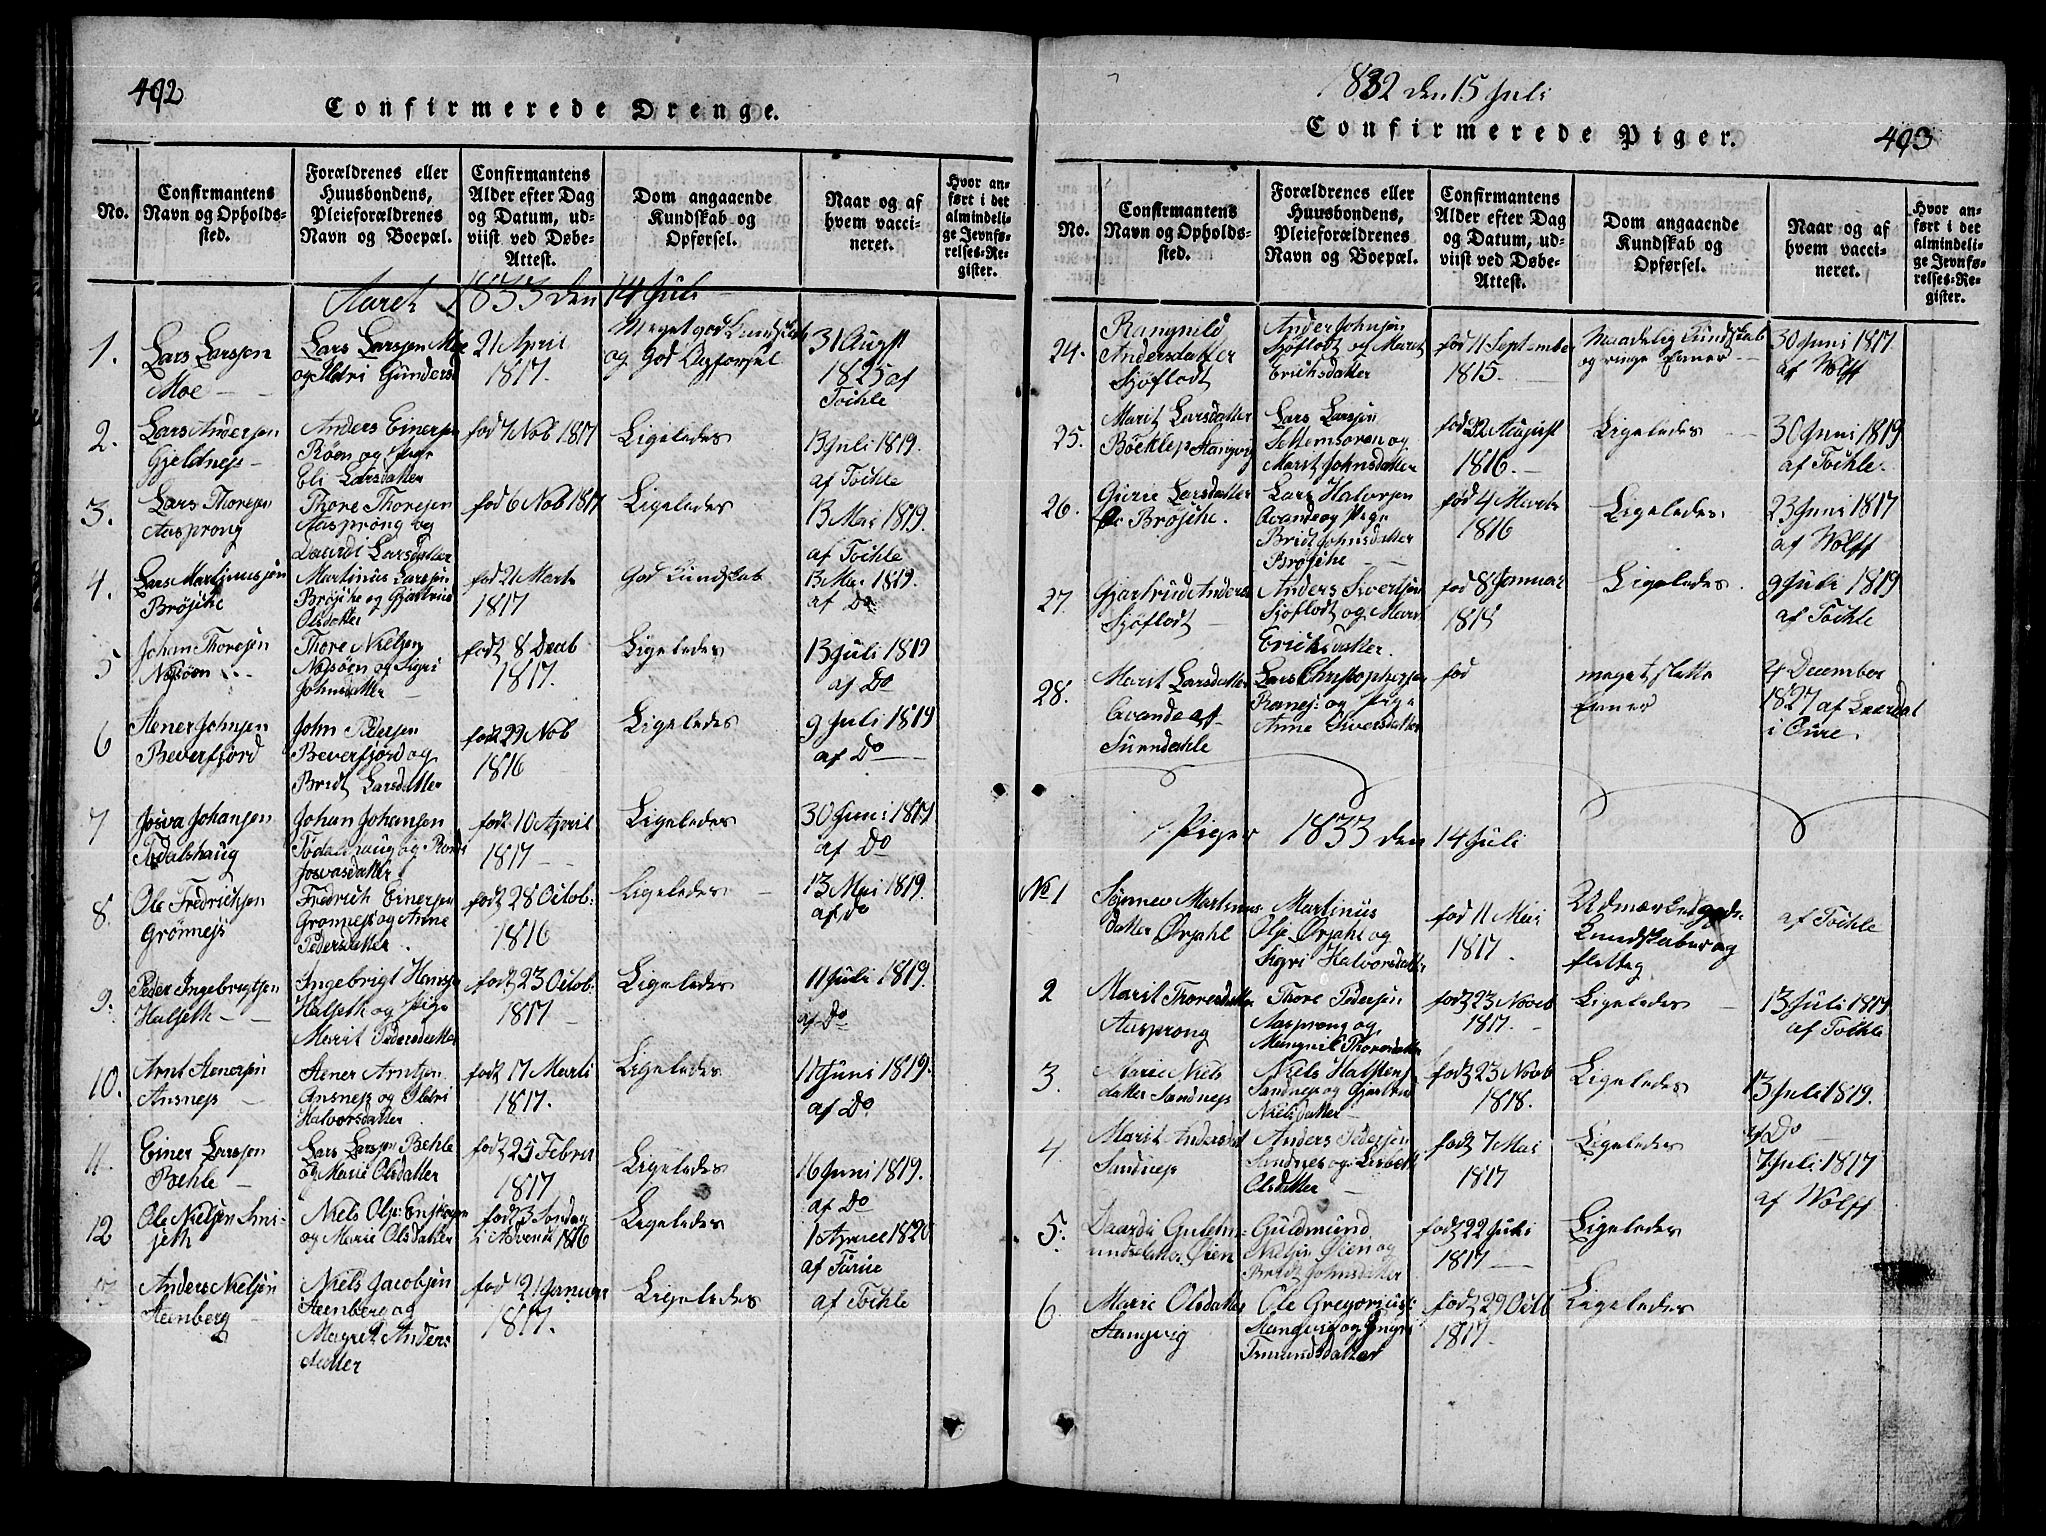 492
Confirmerede Drenge.
No.
Confirmantens
Navn og Opholds-
sted.
Forældrenes eller
Huusbondens,
Pleieforældrenes
Navn og Boepæl.
Confirmantens
Alder efter Dag
og Datum, ud-
viist ved Døbe-
Attest.
Dom angaaende
Kundskab og
Opførsel.
Naar og af
hvem vacci-
neret.
Hvor an-
ført i det
almindeli-
ge Jevnfø-
relses-Re-
gister.
Aaret 1833 den 14 Juli
1.
Lars Larssen
Moe
Lars Larssen Moe
og
21 April
1817.
Meget god Kundskab
og God Opførsel
31 Augst
1825 af
Toihle
2.
Lars Andersen
Gjeldnes
Anders Einersen
Røen og Pige
Eli Larsdatter
fød 7 Nob 1817
Ligeledes
13 Juli 1819.
af Toihle
3.
Lars Thoresen
Aasprong
Thore Thoresen
Aasprong og
Daardi Larsdatter
fød 6 Nob 1817
Ligeledes
13 Mai 1819.
af Toihle
4.
Lars Martinussøn
Brøsche
Martinus Larssøn
Brøsche og Gjertrud
Olsdatter
fød 21 Marts
1817
God Kundskab
13 Mai 1819.
af Do
5
Johan Thoresøn
Nessøen
Thore Nielsen
Nessøen og Sigri
Johnsdatter
født 8 Decb
1817.
Ligeledes
13 Juli 1819
af Do
6
Stener Johnsen
Beverfjord
John Pedersen
Beverfjord og
Bridt Larsdatter
født 29 Nob
1816
Ligeledes
9 Juli 1819
af Do
7
Josva Johansen
Todalshaug
Johan Johansen
Todalshaug og Randi
Josvasdatter
født 10 April
1817
Ligeledes
30 Juni 1817
af Do
8.
Ole Fredrichsen
Grønnes
Fredrich Einersen
Grønnes og Anne
Pedersdatter.
født 28 Octob:
1816
Ligeledes
13 Mai 1819.
af Do
9.
Peder Ingebrigtsen
Halseth
Ingebrigt Hanssen
Halseth og Pige
Marit Pedersdatter
født 23 Octob:
1817
Ligeledes
11 Juli 1819.
af Do
10.
Arnt Stenersøn
Ansnes
Stener Arntsen
Ansnes og
Halvorsdatter
født 17 Marti
1817.
Ligeledes
11 Juni 1819.
af Do
11.
Einer Larssøn
Behle
Lars Larssen Behle
og Marie Olsdatter
født 25 Febru
1817
Ligeledes
16 Juni 1819.
af Do
12
Ole Nielsen
seth
Niels Olsen
og Marie Olsdatter
født 3 Søndag
i Advent 1816
Ligeledes
1 Aprill 1820
af
Anders Nielsøn
Steenberg
Niels Jacobsen
Steenberg og
Magret Anders
datter
fød 21 Januar
1817.
Ligeledes
af Toihle
1832 den 15 Juli
Confirmerede Piger.
493
No.
Confirmantens
Navn og Opholds-
sted.
Forældrenes eller
Huusbondens,
Pleieforældrenes
Navn og Boepæl.
Confirmantens
Alder efter Dag
og Datum, ud-
viist ved Døbe-
Attest.
Dom angaaende
Kundskab og
Opførsel.
Naar og af
hvem vacci-
neret.
Hvor an-
ført i det
almindeli-
ge Jevnfø-
relses-Re-
gister.
24.
Rangnild
Andersdatter
Sjøflodt
Ander Johnsøn
Sjøflodt og Marit
Eriksdatter
fød 11 September
1815.
Maadelig Kundskab
og ringe Evner
30 Juni 1817.
af Wolff
25.
Marit Larsdatter
Bøeklep Stangvig
Lars Larsøn
Settemsøren og
Marit Johnsdatter
fød 22 August
1816.
Ligeledes
30 Juni 1819
af Toihle.
26.
Gurie Larsdatter
Brøsche.
Lars Halvorsen
Qvande og Pige
Bridt Johnsdatter
Brøsche
fød 4 Marts
1816
Ligeledes
23 Juni 1817
af Wolff
27.
Gjertrud Anders
Sjøflodt
Anders Sivertsøn
Sjøflodt og Marit
Ericksdatter.
fød 8 Januar
1815
Ligeledes.
9 Juli 1819
af Toihle
28.
Marit Larsdatter
Qvande af
Surendahle
Lars Christophersen
Ranes og Pige
Anne Siversdatter
fød
meget slette
Evner
4 December
1827 af Leerdal
i Øure.
Piger 1833 den 14 Juli
No 1
Synnev Martinus
datter Ørsahl
Martinus
Olse Ørsahl og
Sigri Halvorsdatter
fød 11 Mai
1817.
Udmærket gode
Kundskaber og
flettig
af Toihle
2
Marit Thoresdatter
Aasprong
Thore Pedersen
Aasprong og
Mangnil Thoresdatter
født 23 Novb
1817.
Ligeledes
13 Juli 1819
af Toihle
3.
Marie Niels
datter Sandnes
Niels Halstens
Sandnes og Gjertrud
Nielsdatter
født 23 Novb
1818.
Ligeledes
13 Juli 1819.
af Do
4
Marit Andersdat
Sandnes
Anders Pedersen
Sandnes og Lisbeth
Olsdatter
født 7 Mai
1817
Ligeledes
7 Juli 1817
af Wolff
5.
Daardi Guldm-
undsdatter Øien
Guldmund
Nielsen Øien og
Bridt Johnsdatter
født 22 Juli
1817
Ligeledes
6.
Marie Olsdatter
Stangvig
Ole Gregorius:
Stangvig og Ingri
Tormundsdatter
født 29 Octb
1817
Ligeledes